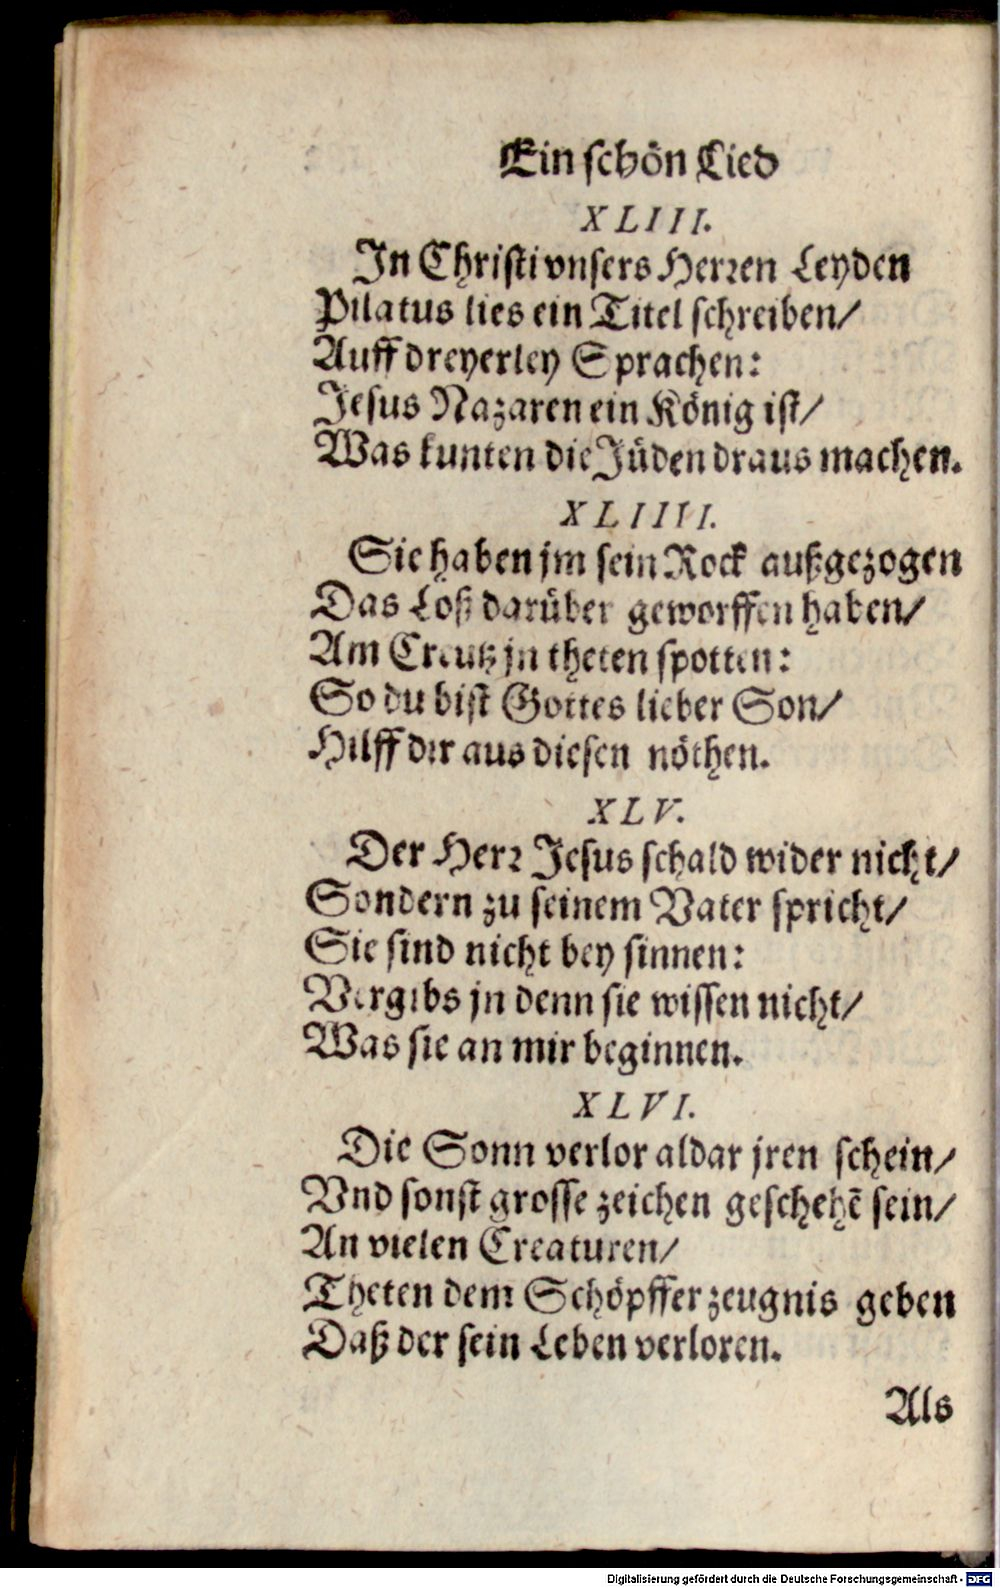 Ein schön Lied
XLIII.
In Christi vnsers Herren Leyden
Pilatus lies ein Titel schreiben/
Auff dreyerley Sprachen:
Jesus Nazaren ein König ist/
Was kunten die Jüden draus machen.
XLIIII.
Sie haben jm sein Rock außgezogen
Das Loß darüber geworffen haben/
Am Creutz jn theten spotten:
So du bist Gottes lieber Son/
Hilff dir aus diesen nöthen.
XLV.
Der Herr Jesus schald wider nicht/
Sondern zu seinem Vater spricht/
Sie sind nicht bey sinnen:
Vergibs jn denn sie wissen nicht/
Was sie an mir beginnen.
XLVI.
Die Sonn verlor aldar jren schein/
Vnd sonst grosse zeichen geschehē sein/
An vielen Creaturen/
Theten dem Schöpffer zeugnis geben
Daß der sein Leben verloren.
Als
Digitalisierung gefördert durch die Deutsche Forschungsgemeinschaft - DFG